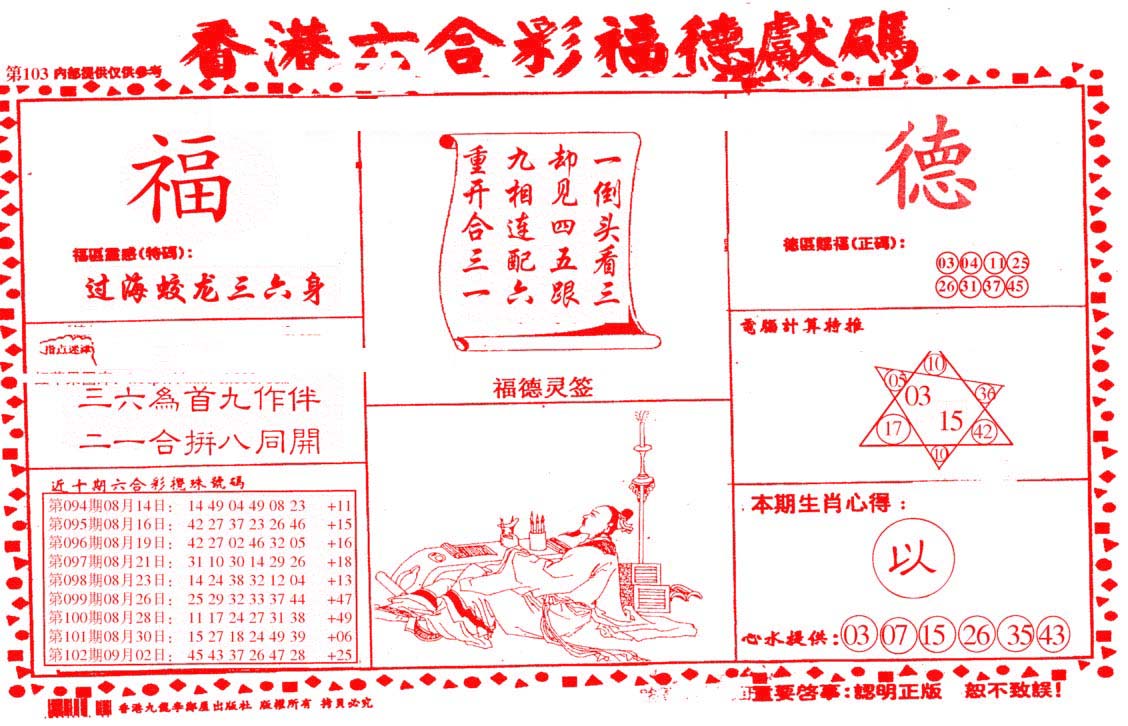 香港六合彩福德獻碼
第103 内部提供仅供参考
福
福區靈感(特碼):
过海蛟龙三六身
三六為首九作伴
二一合拼八同開
近十期六合彩攪珠號碼
第094期08月14日: 14 49 04 49 08 23 +11
第095期08月16日: 42 27 37 23 26 46 +15
第096期08月19日: 42 27 02 46 32 05 +16
第097期08月21日: 31 10 30 14 29 26 +18
第098期08月23日: 14 24 38 32 12 04 +13
第099期08月26日: 25 29 32 33 37 44 +47
第100期08月28日: 11 17 24 27 31 38 +49
第101期08月30日: 15 27 18 24 49 39 +06
第102期09月02日: 45 43 37 26 47 28 +25
一倒头看三
却见四五跟
九相连配六
重开合三一
福德灵签
德
德區賜福(正碼):
03 04 11 25
26 31 37 45
電腦計算特推
10
05 03 36
17 15 42
10
本期生肖心得:
以
心水提供: 03 07 15 26 35 43
重要啓事:認明正版 恕不致誤!
版權所有 拷貝必究